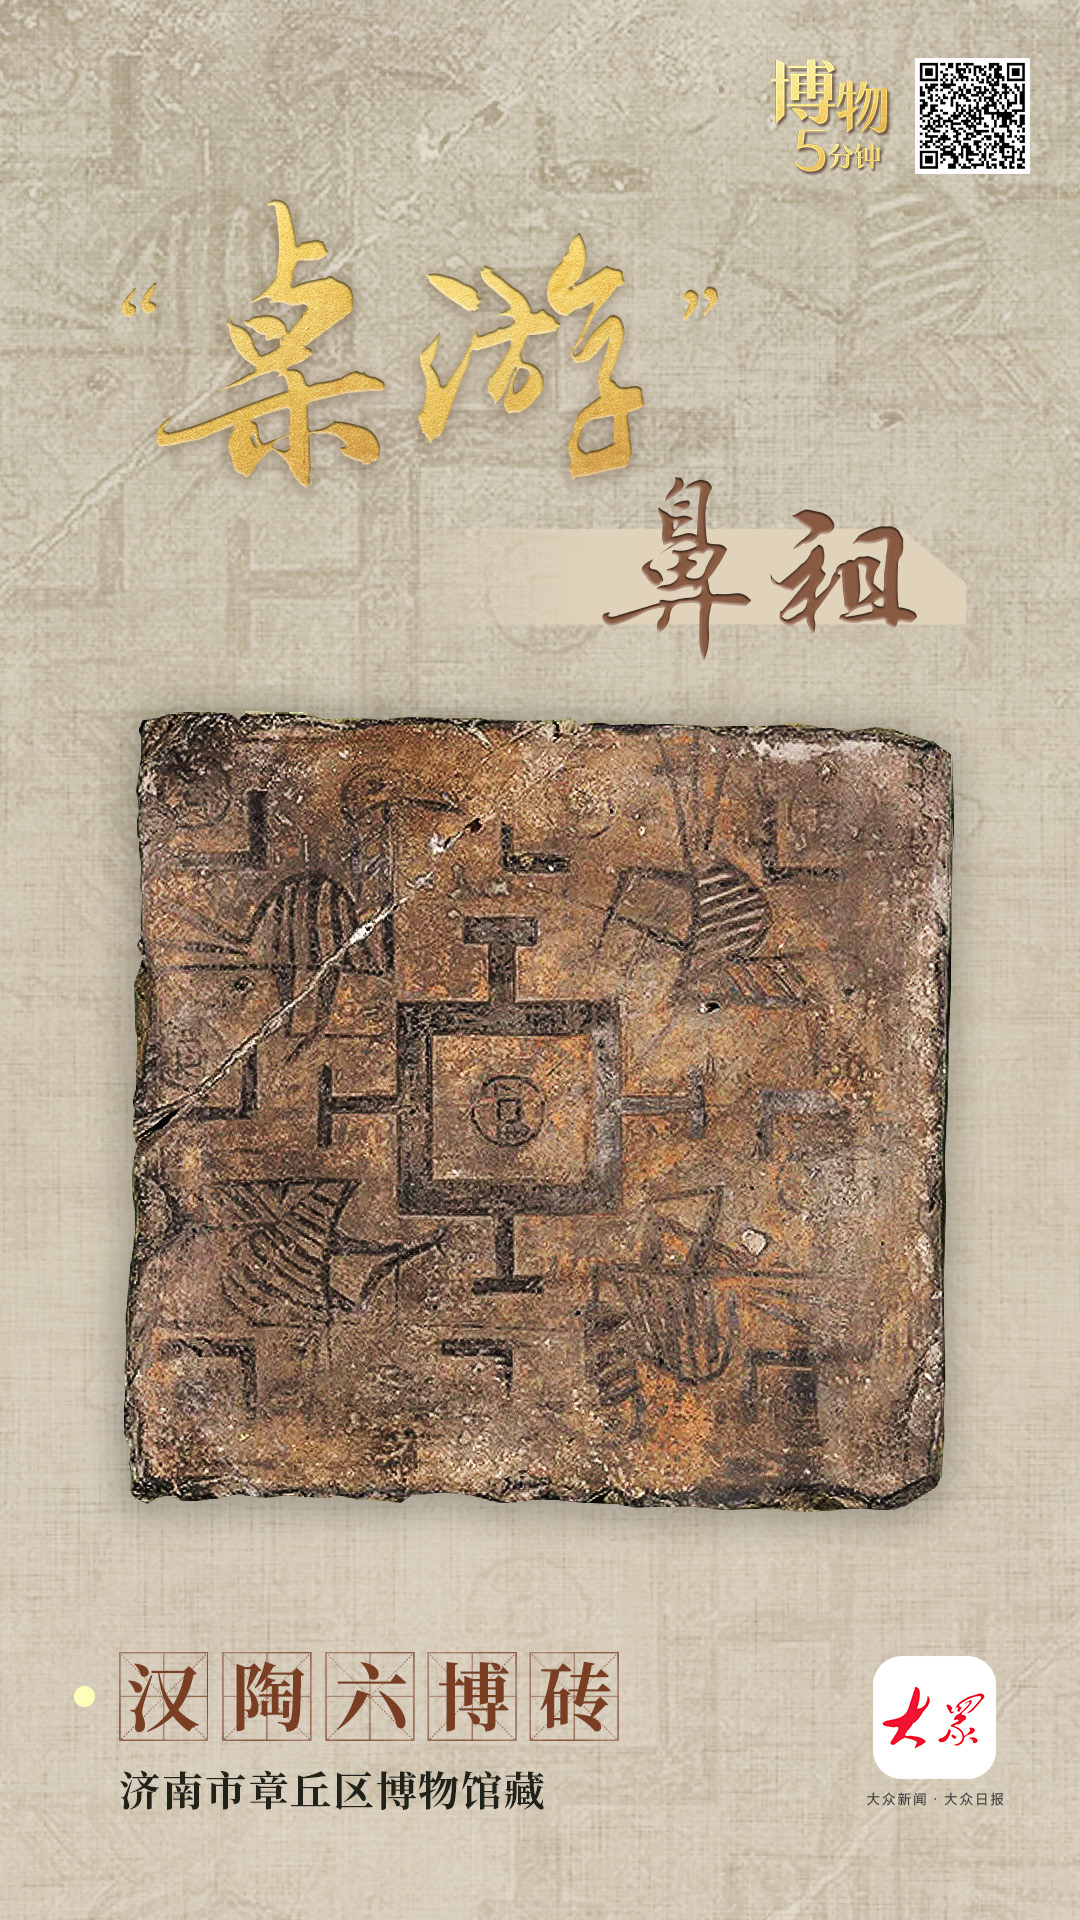 博物
5分钟
“桌游”
鼻祖
汉陶六博砖
济南市章丘区博物馆藏
大众
大众新闻·大众日报